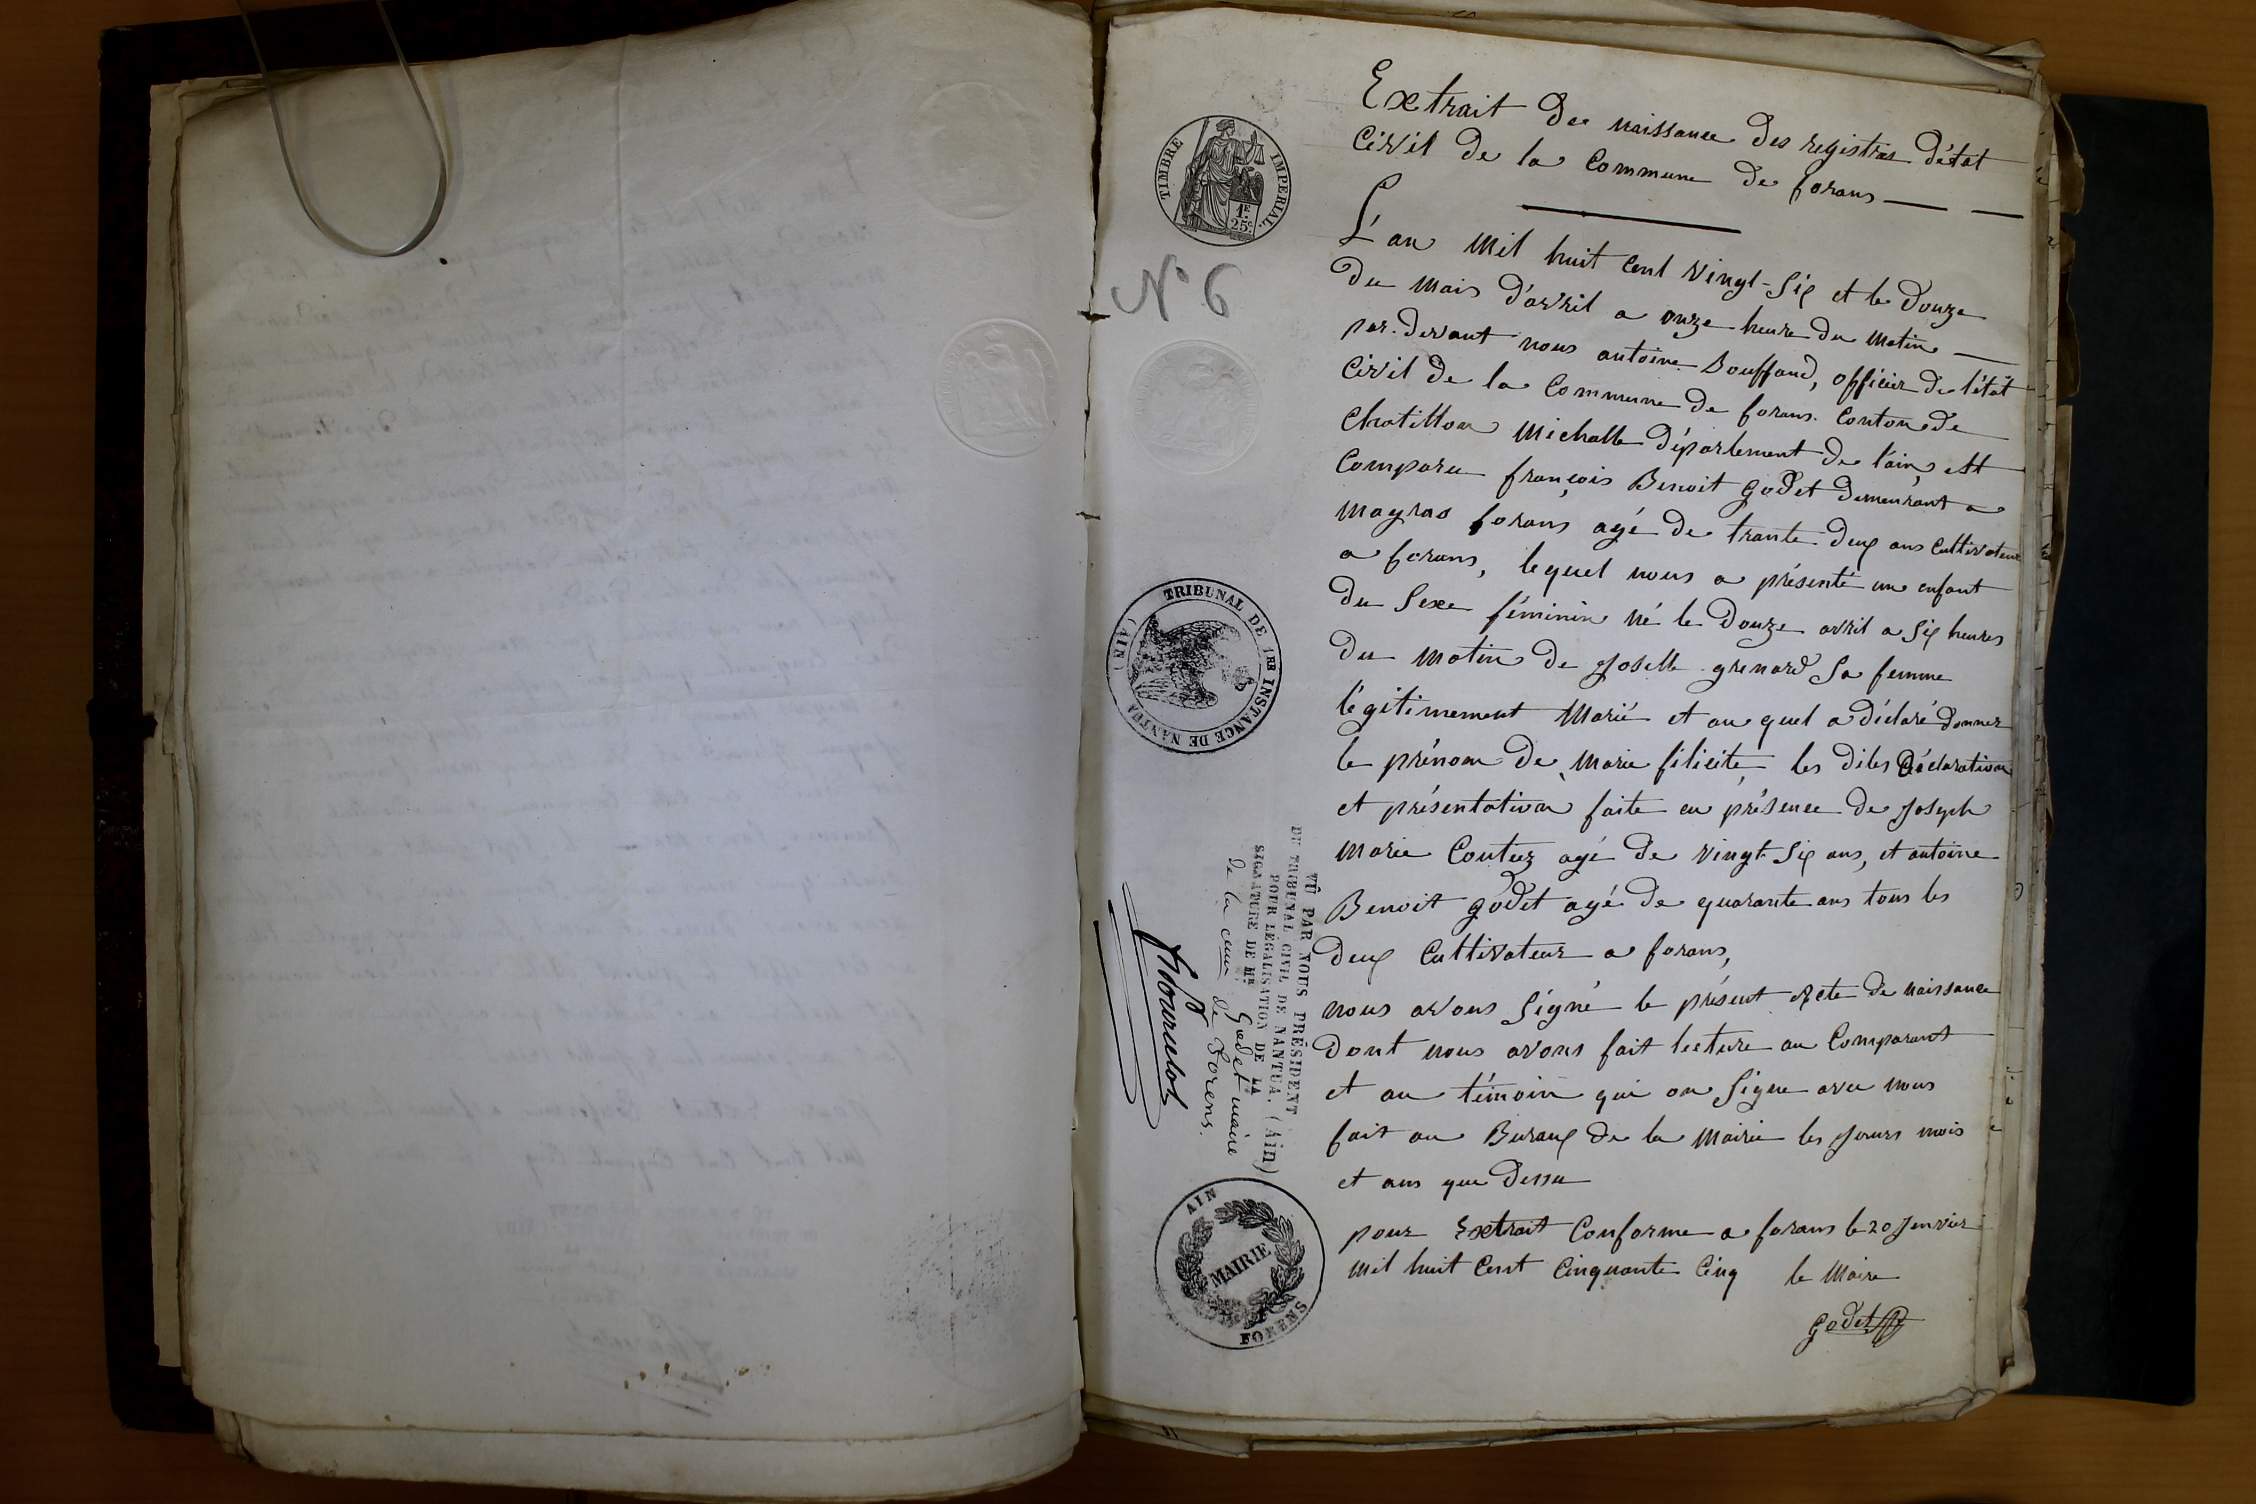 Extrait de naissance des registres d'état
Civil de la Commune de forans
L'an mil huit cent vingt-six et le douze
du mois d'avril a onze heure du matin
par-devant nous antoine Bouffand, officier de l'état
Civil de la Commune de forans. Canton de
Chatillon Michalle département de l'ain, est
Comparu françois Benoit godet demeurant a
magras forans agé de trante-deux ans Cultivateur
a forans, lequel nous a présenté un enfant
du sexe féminin né le douze avril a six heures
du matin de joselle grenard sa femme
légitimement Marié et au quel a déclaré donner
le prénom de, Marie filicite, les dites Déclaration
et présentation faite en présence de joseph
Marie Coutuz agé de vingt-six ans, et antoine
Benoit godet agé de quarante ans tous les
deux Cultivateur a forans,
nous avons signé le présent acte de naissance
dont nous avons fait lecture au Comparant
et au témoin qui on signe avec nous
fait au Buraux de la Mairie les jours mois
et ans que dessu
pour Extrait Conforme a forans le 20 janvier
mil huit Cent Cinquante Cinq le Maire
godet
TIMBRE IMPERIAL.
1F.
25c.
N° 6
TRIBUNAL DE 1ER INSTANCE DE NANTUA (AIN)
VÛ PAR NOUS PRÉSIDENT
DU TRIBUNAL CIVIL DE NANTUA. (Ain)
POUR LÉGALISATION DE LA
SIGNATURE DE MR. Godet maire
de la cune de Forens.
AIN
MAIRIE
FORENS